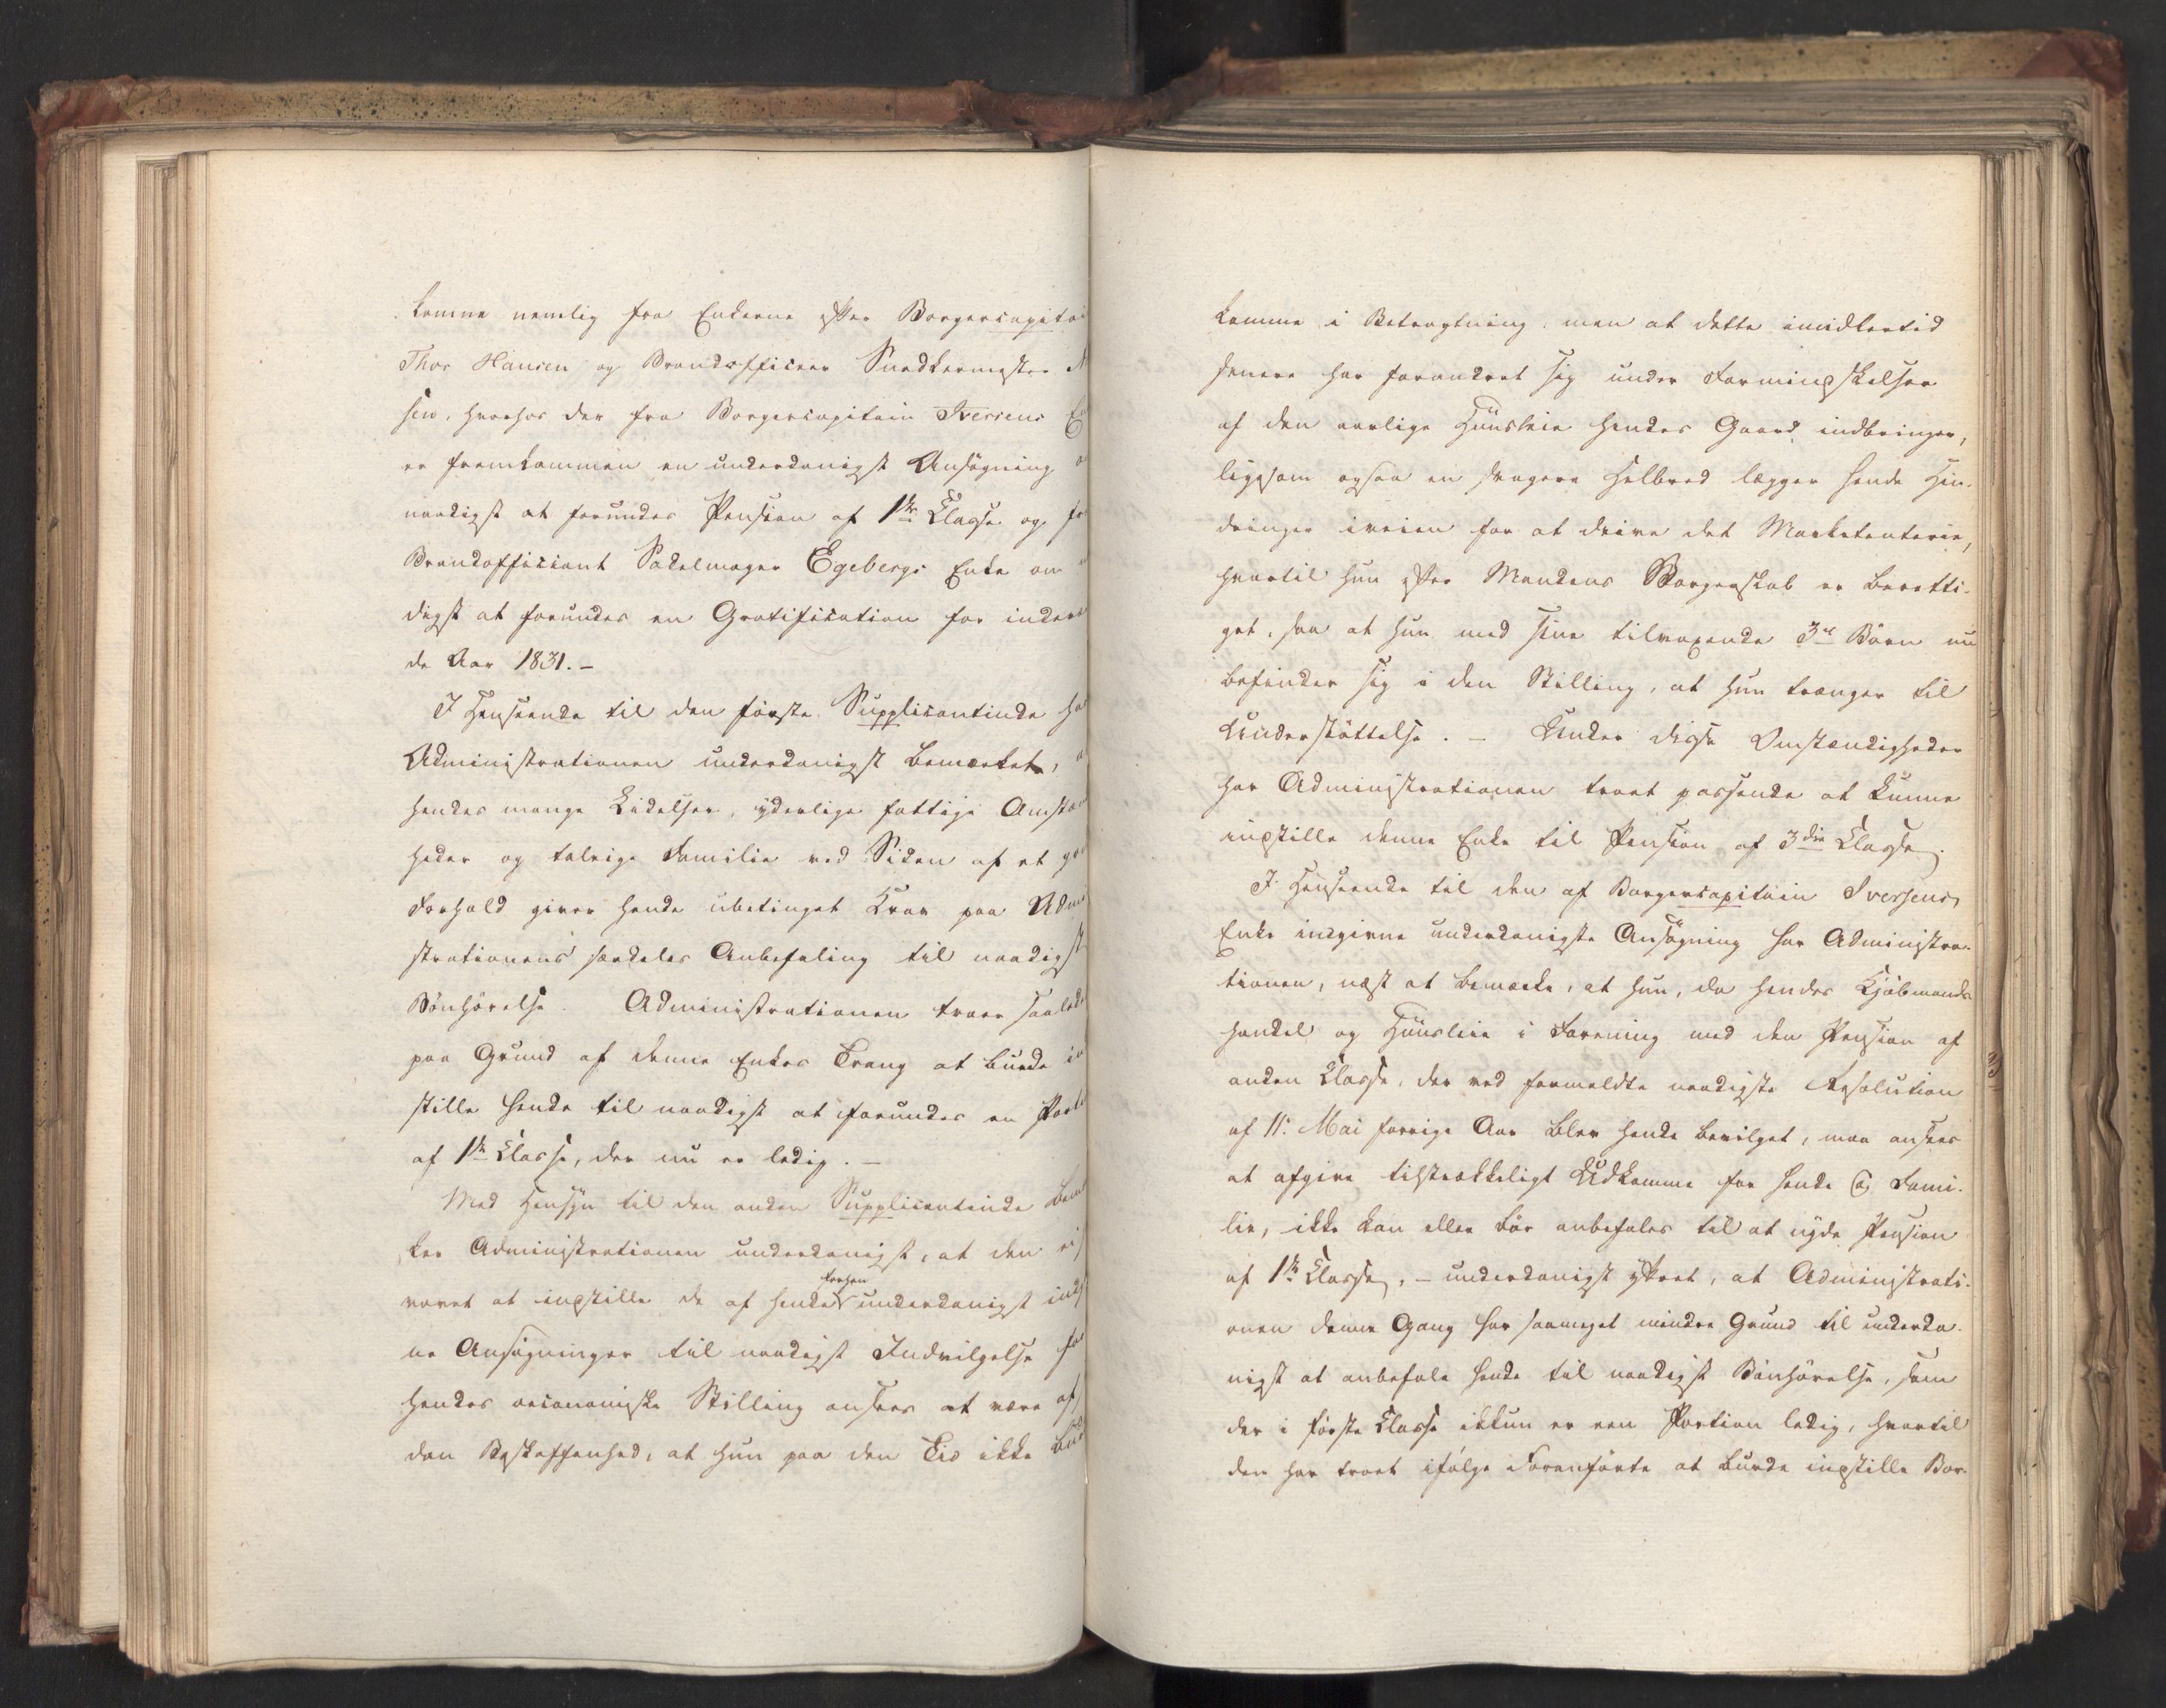 komme nemlig fra Enkerne efter Borgercapitai
Thor Hansen og Brandofficeer Snedkermester N
sen, hvorhos der fra Borgercapitain Iversens En
er fremkommen en underdanigst Ansøgning o
naadigst at forundes Pension af 1ste Classe og fr
Brandofficiant Sadelmager Egebergs Enke om
digst at forundes en Gratification for indevæ
de Aar 1831.-
I Henseende til den første Supplicantinde ha
Administrationen underdanigst bemærket, a
hendes mange Lidelser, yderlige fattige Omstæn
heder og talrige Familie ved Siden af et go
Forhold giver hende ubetinget Krav paa Admi
strationens særdeles Anbefaling til naadigst
Bönhörelse. Administrationen troer saalede
paa Grund af denne Enkes Trang at burde in
stille hende til naadigst at forundes en Porti
af 1ste Classe, der nu er ledig. -
Med Hensyn til den anden Supplicantinde bemæ
ker Administrationen underdanigst, at den ei
forhen
vovet at indstille de af hende underdanigst indg
ne Ansøgninger til naadigst Indvilgelse fo
hendes oeconomiske Stilling ansees at være af
den Beskaffenhed, at hun paa den Tid ikke bur
komme i Betragtning, men at dette imidlertid
senere har forandret sig under Formindskelsen
af den aarlige Huusleie hendes Gaard indbringer,
ligesom ogsaa en svagere Helbred lægger hende Hin-
dringer iveien for at drive det Marketenterie,
hvortil hun efter Mandens Borgerskab er beretti-
get, saa at hun med sine tilvoxende 3de Börn nu
befinder sig i den Stilling, at hun trænger til
Understöttelse. - Under disse Omstændigheder
har Administrationen troet passende at kunne
indstille denne Enke til Pension af 3die Classe.
I Henseende til den af Borgercapitain Iversens
Enke indgivne underdanigste Ansøgning har Administra-
tionen, næst at bemærke, at hun, da hendes Kjöbmands
handel og Huusleie i Forening med den Pension af
anden Classe, der ved formeldte naadigste Resolution
af 11. Mai forrige Aar blev hende bevilget, maa ansees
at afgive tilstrækkeligt Udkomme for hende og Fami-
lie, ikke kan eller bör anbefales til at nyde Pension
af 1ste Classe, - underdanigst yttret, at Administrati-
onen denne Gang har saameget mindre Grund til underda-
nigst at anbefale hende til naadigst Bönhörelse, som
der i første Classe ikkun er een Portion ledig, hvortil
den har troet ifølge Foranførte at burde indstille Bor-